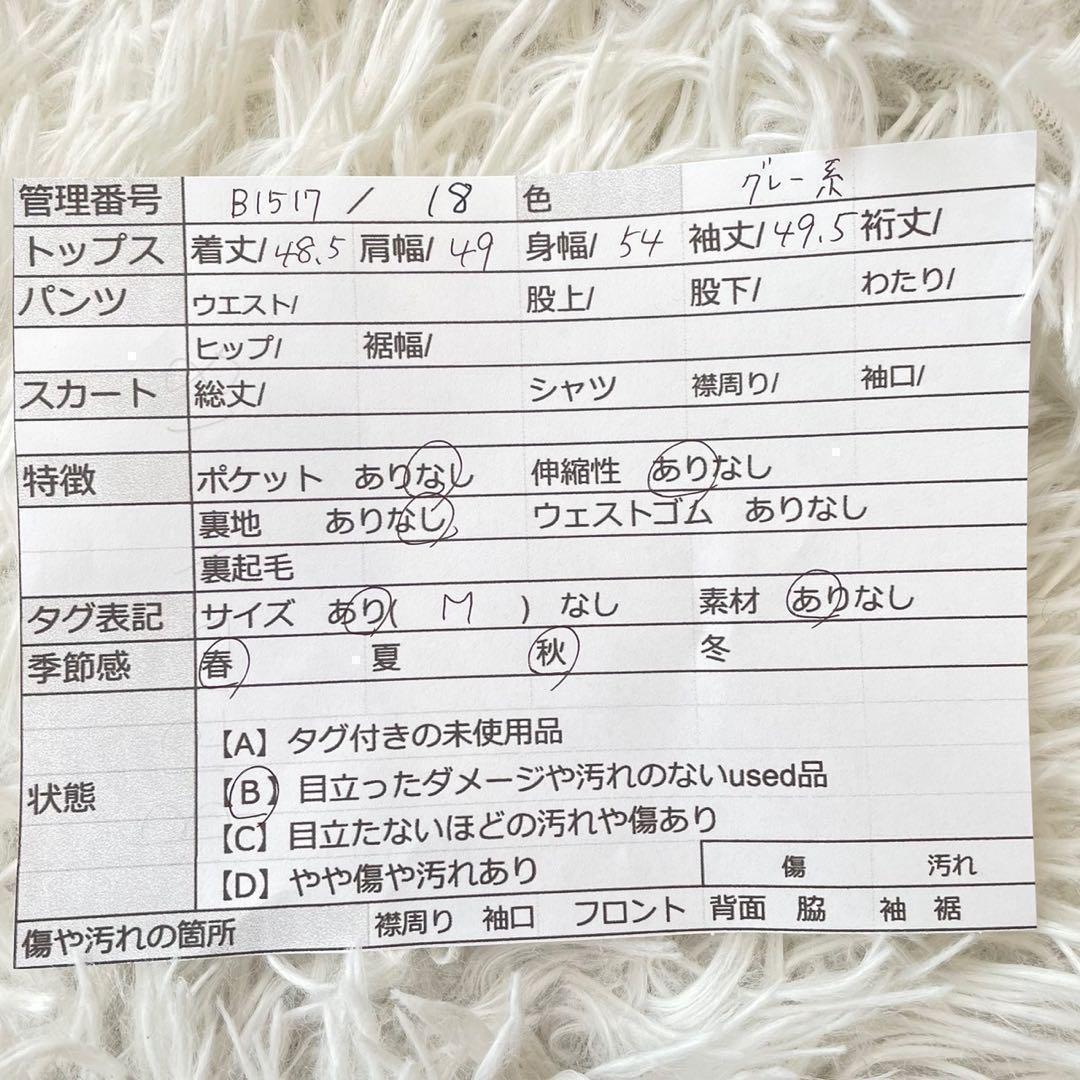 管理番号 B1517 / 18 色 グレー系
トップス 着丈/48.5 肩幅/ 49 身幅/ 54 袖丈/49.5 裄丈/
パンツ ウエスト/ 股上/ 股下/ わたり/
ヒップ/ 裾幅/
スカート 総丈/ シャツ 襟周り/ 袖口/
特徴 ポケット ありなし 伸縮性 ありなし
裏地 ありなし ウェストゴム ありなし
裏起毛
タグ表記 サイズ あり( M ) なし 素材 ありなし
季節感 春 夏 秋 冬
状態
【A】タグ付きの未使用品
【B】目立ったダメージや汚れのないused品
【C】目立たないほどの汚れや傷あり
【D】やや傷や汚れあり 傷 汚れ
傷や汚れの箇所 襟周り 袖口 フロント 背面 脇 袖 裾